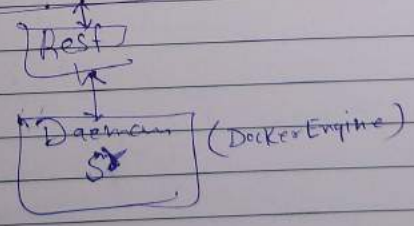 Rest
Daeman (DockerEngine)